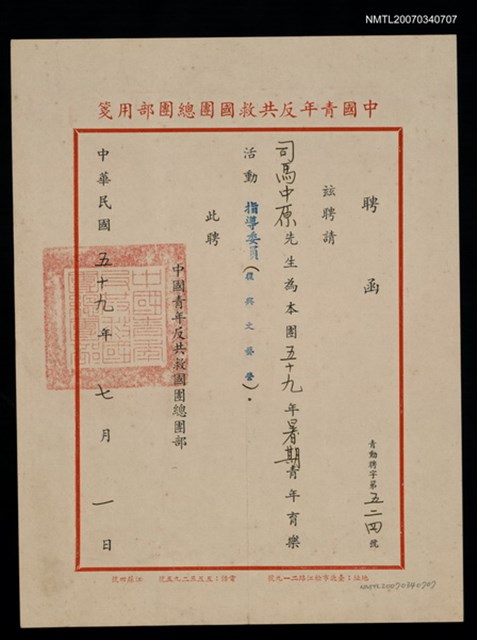 NMTL20070340707
中國青年反共救國團總團部用箋
聘函
青動聘字第五二四號
茲聘請
司馬中原先生為本團五十九年暑期青年育樂
活動指導委員(復興文藝營)。
此聘
中國青年反共救國團總團部
中華民國五十九年七月一日
地址:臺北市松江路二一九號
NMTL20070340707